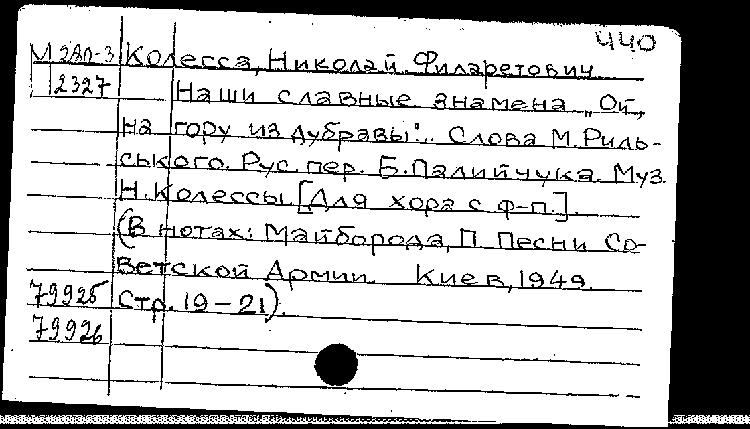 440
М 2АО-3 Колесса, Николай Филаретович
2327 Наши славные знамена „Ой,
на гору из дубравы". Слова М. Риль-
ського. Рус. пер. Б. Палийчука. Муз.
Н. Колессы. [Для хора с ф-п.].
(В нотах: Майборода, П. Песни Со-
ветской Армии. Киев, 1949.
79925 Стр. 19-21).
79926